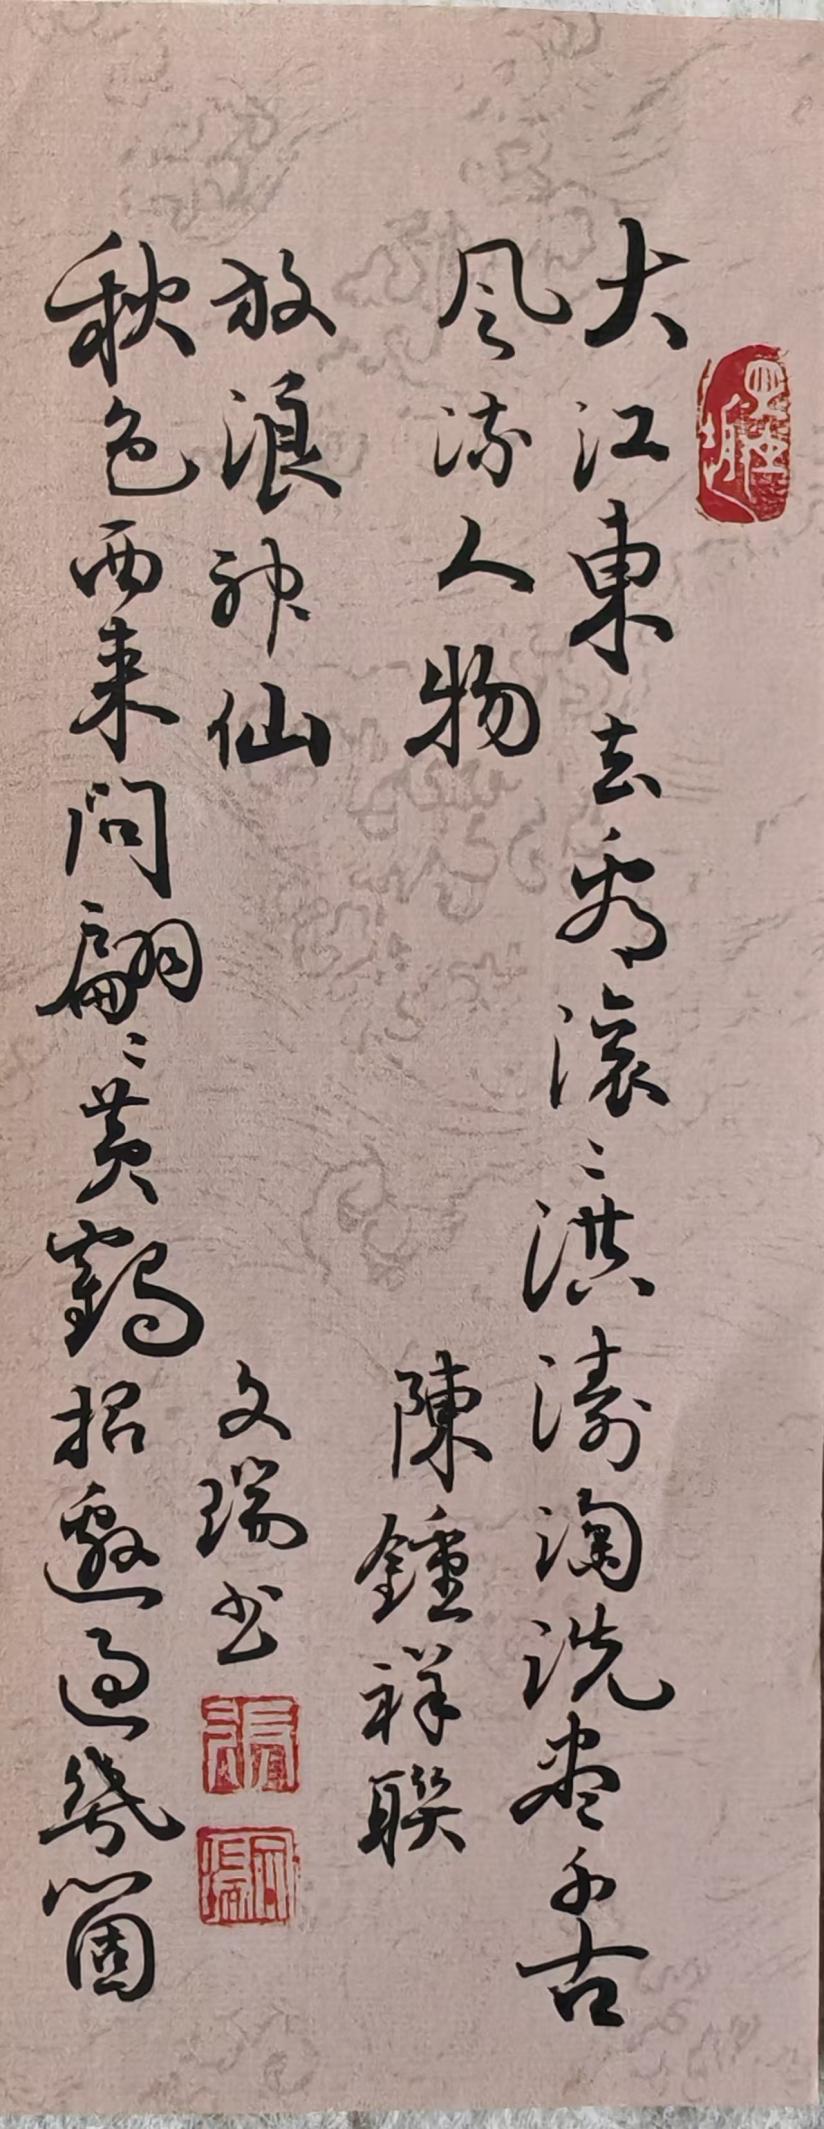 大江東去看滚〻洪濤淘洗盡千古
风流人物
陳鍾祥聯
秋色西来問翩〻黄鶴招邀過幾箇
放浪神仙
文瑞书